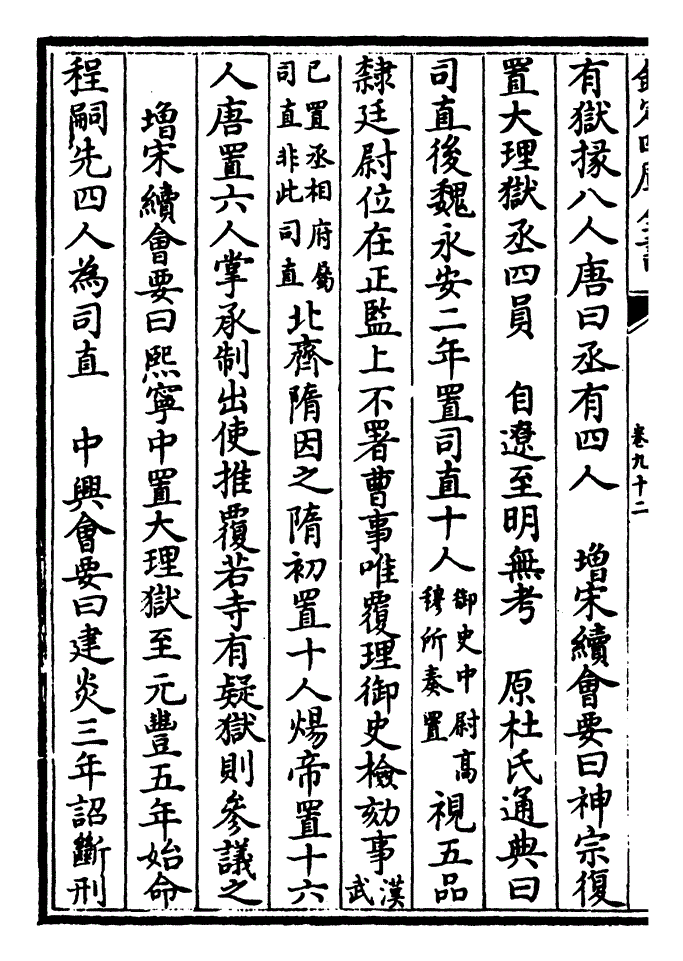 欽定四庫全書
卷九十二
有獄掾八人唐曰丞有四人　增宋續會要曰神宗復
置大理獄丞四員　自遼至明無考　原杜氏通典曰
司直後魏永安二年置司直十人御史中尉高穆所奏置視五品
隸廷尉位在正監上不署曹事唯覆理御史檢劾事漢武
已置丞相府屬司直非此司直北齊隋因之隋初置十人煬帝置十六
人唐置六人掌承制出使推覆若寺有疑獄則參議之
增宋續會要曰熙寧中置大理獄至元豐五年始命
程嗣先四人為司直　中興會要曰建炎三年詔斷刑